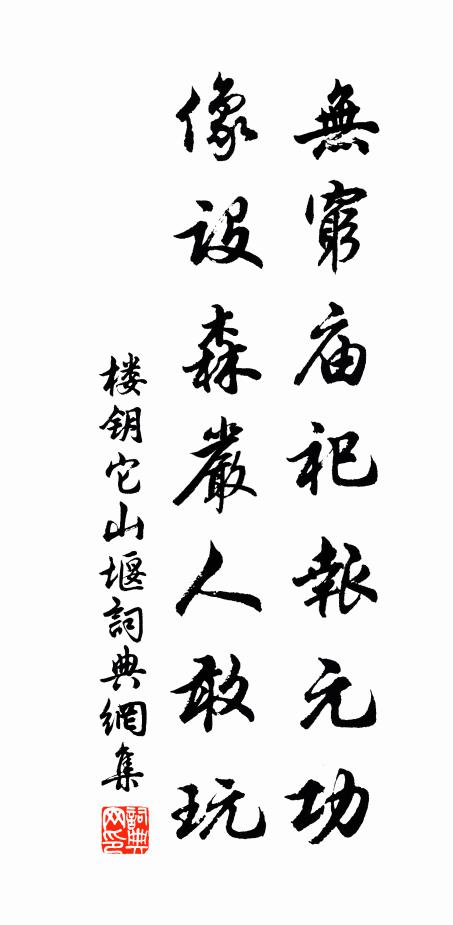 無窮庙祀報元功
像設森嚴人敢玩
楼钥它山堰詞典網集
詞典网印